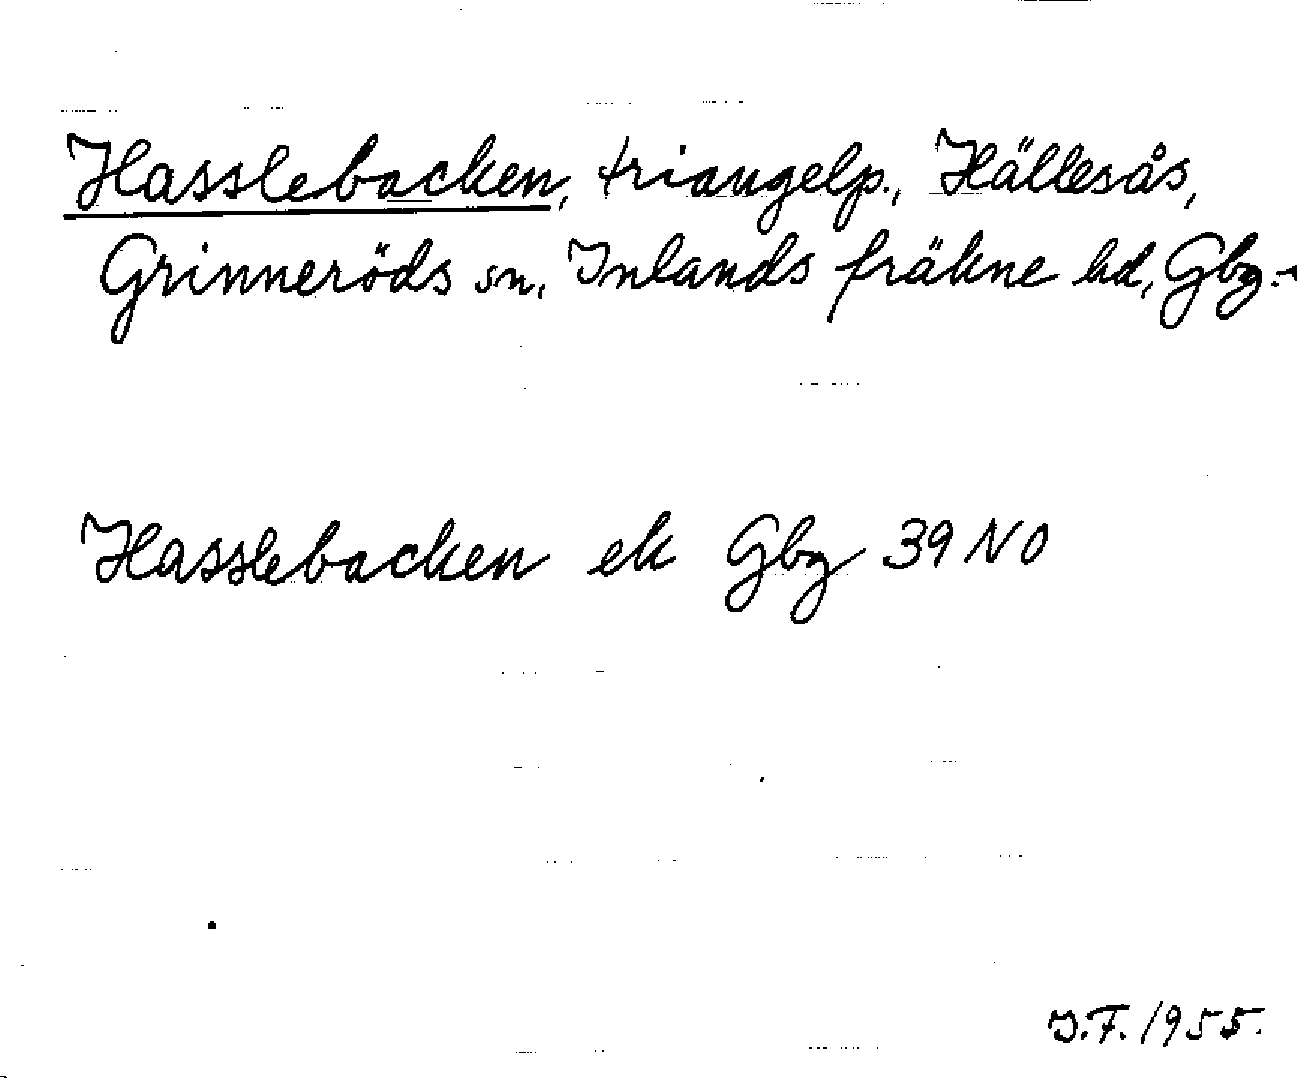 Hasslebacken, triangelp., Hällesås,
Grinneröds sn, Inlands fräkne hd, Gbg.-
Hasslebacken ek Gbg 39 NO
I.F. 1955.